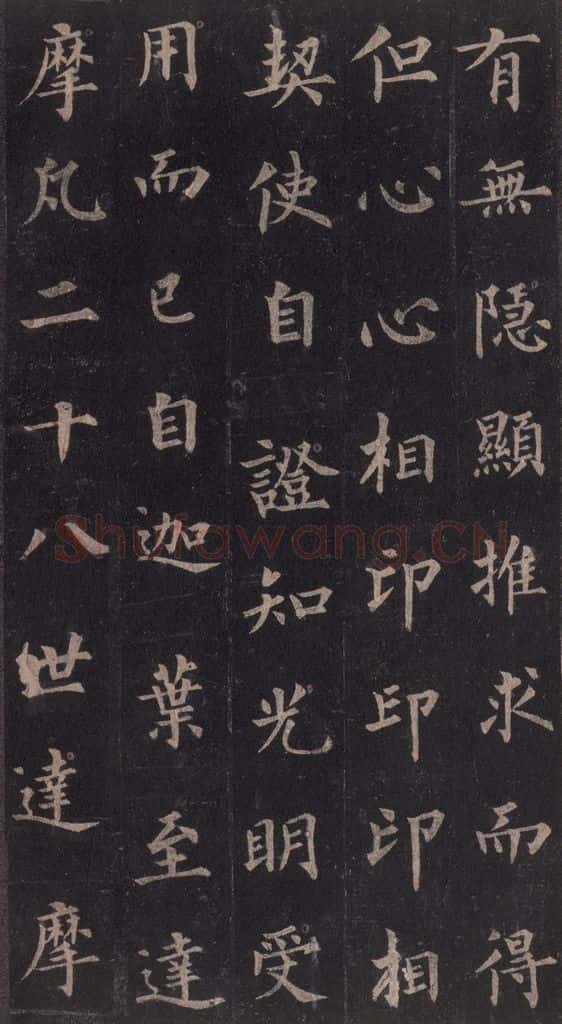 有無隱顯推求而得
但心心相印印印相
契使自證知光明受
用而已自迦葉至達
摩凡二十八世達摩
Shufawang.CN